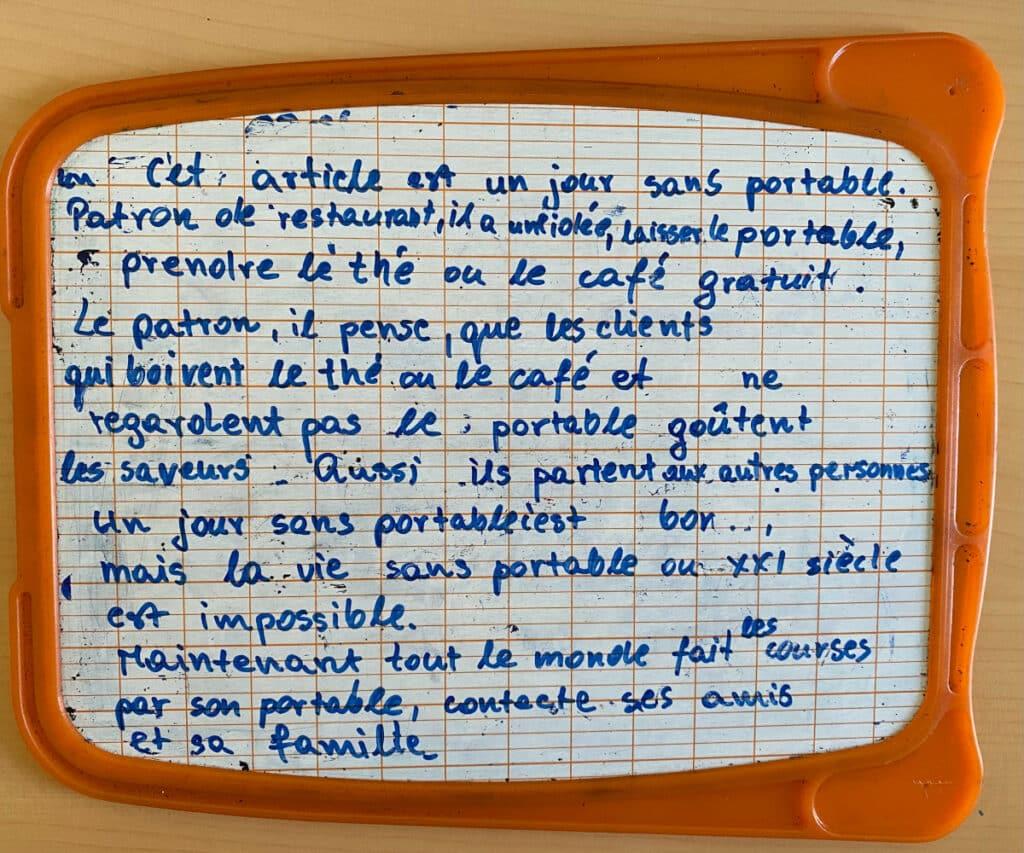 C'et article est un jour sans portable.
Patron de restaurant, il a une idée, laisser le portable,
prendre le thé ou le café gratuit.
Le patron, il pense, que les clients
qui boivent le thé ou le café et ne
regardent pas le portable goûtent
les saveurs. Aussi ils parlent aux autres personnes
Un jour sans portable est bon..,
mais la vie sans portable ou XXI siècle
est impossible.
Maintenant tout le monde fait les courses
par son portable, contacte ses amis
et sa famille